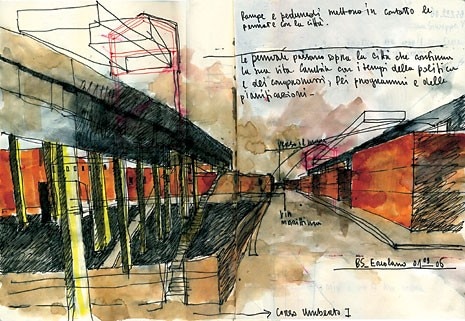 Rampe e pedonali mettono in contatto le
pensiate con la città.
Le pensiate passano sopra la città che continua
la sua vita lambita con i tempi della politica
e dei compromessi, dei programmi e delle
pianificazioni –
VIA
marittima
BS. Ercolano 01 06
Corso Umberto I